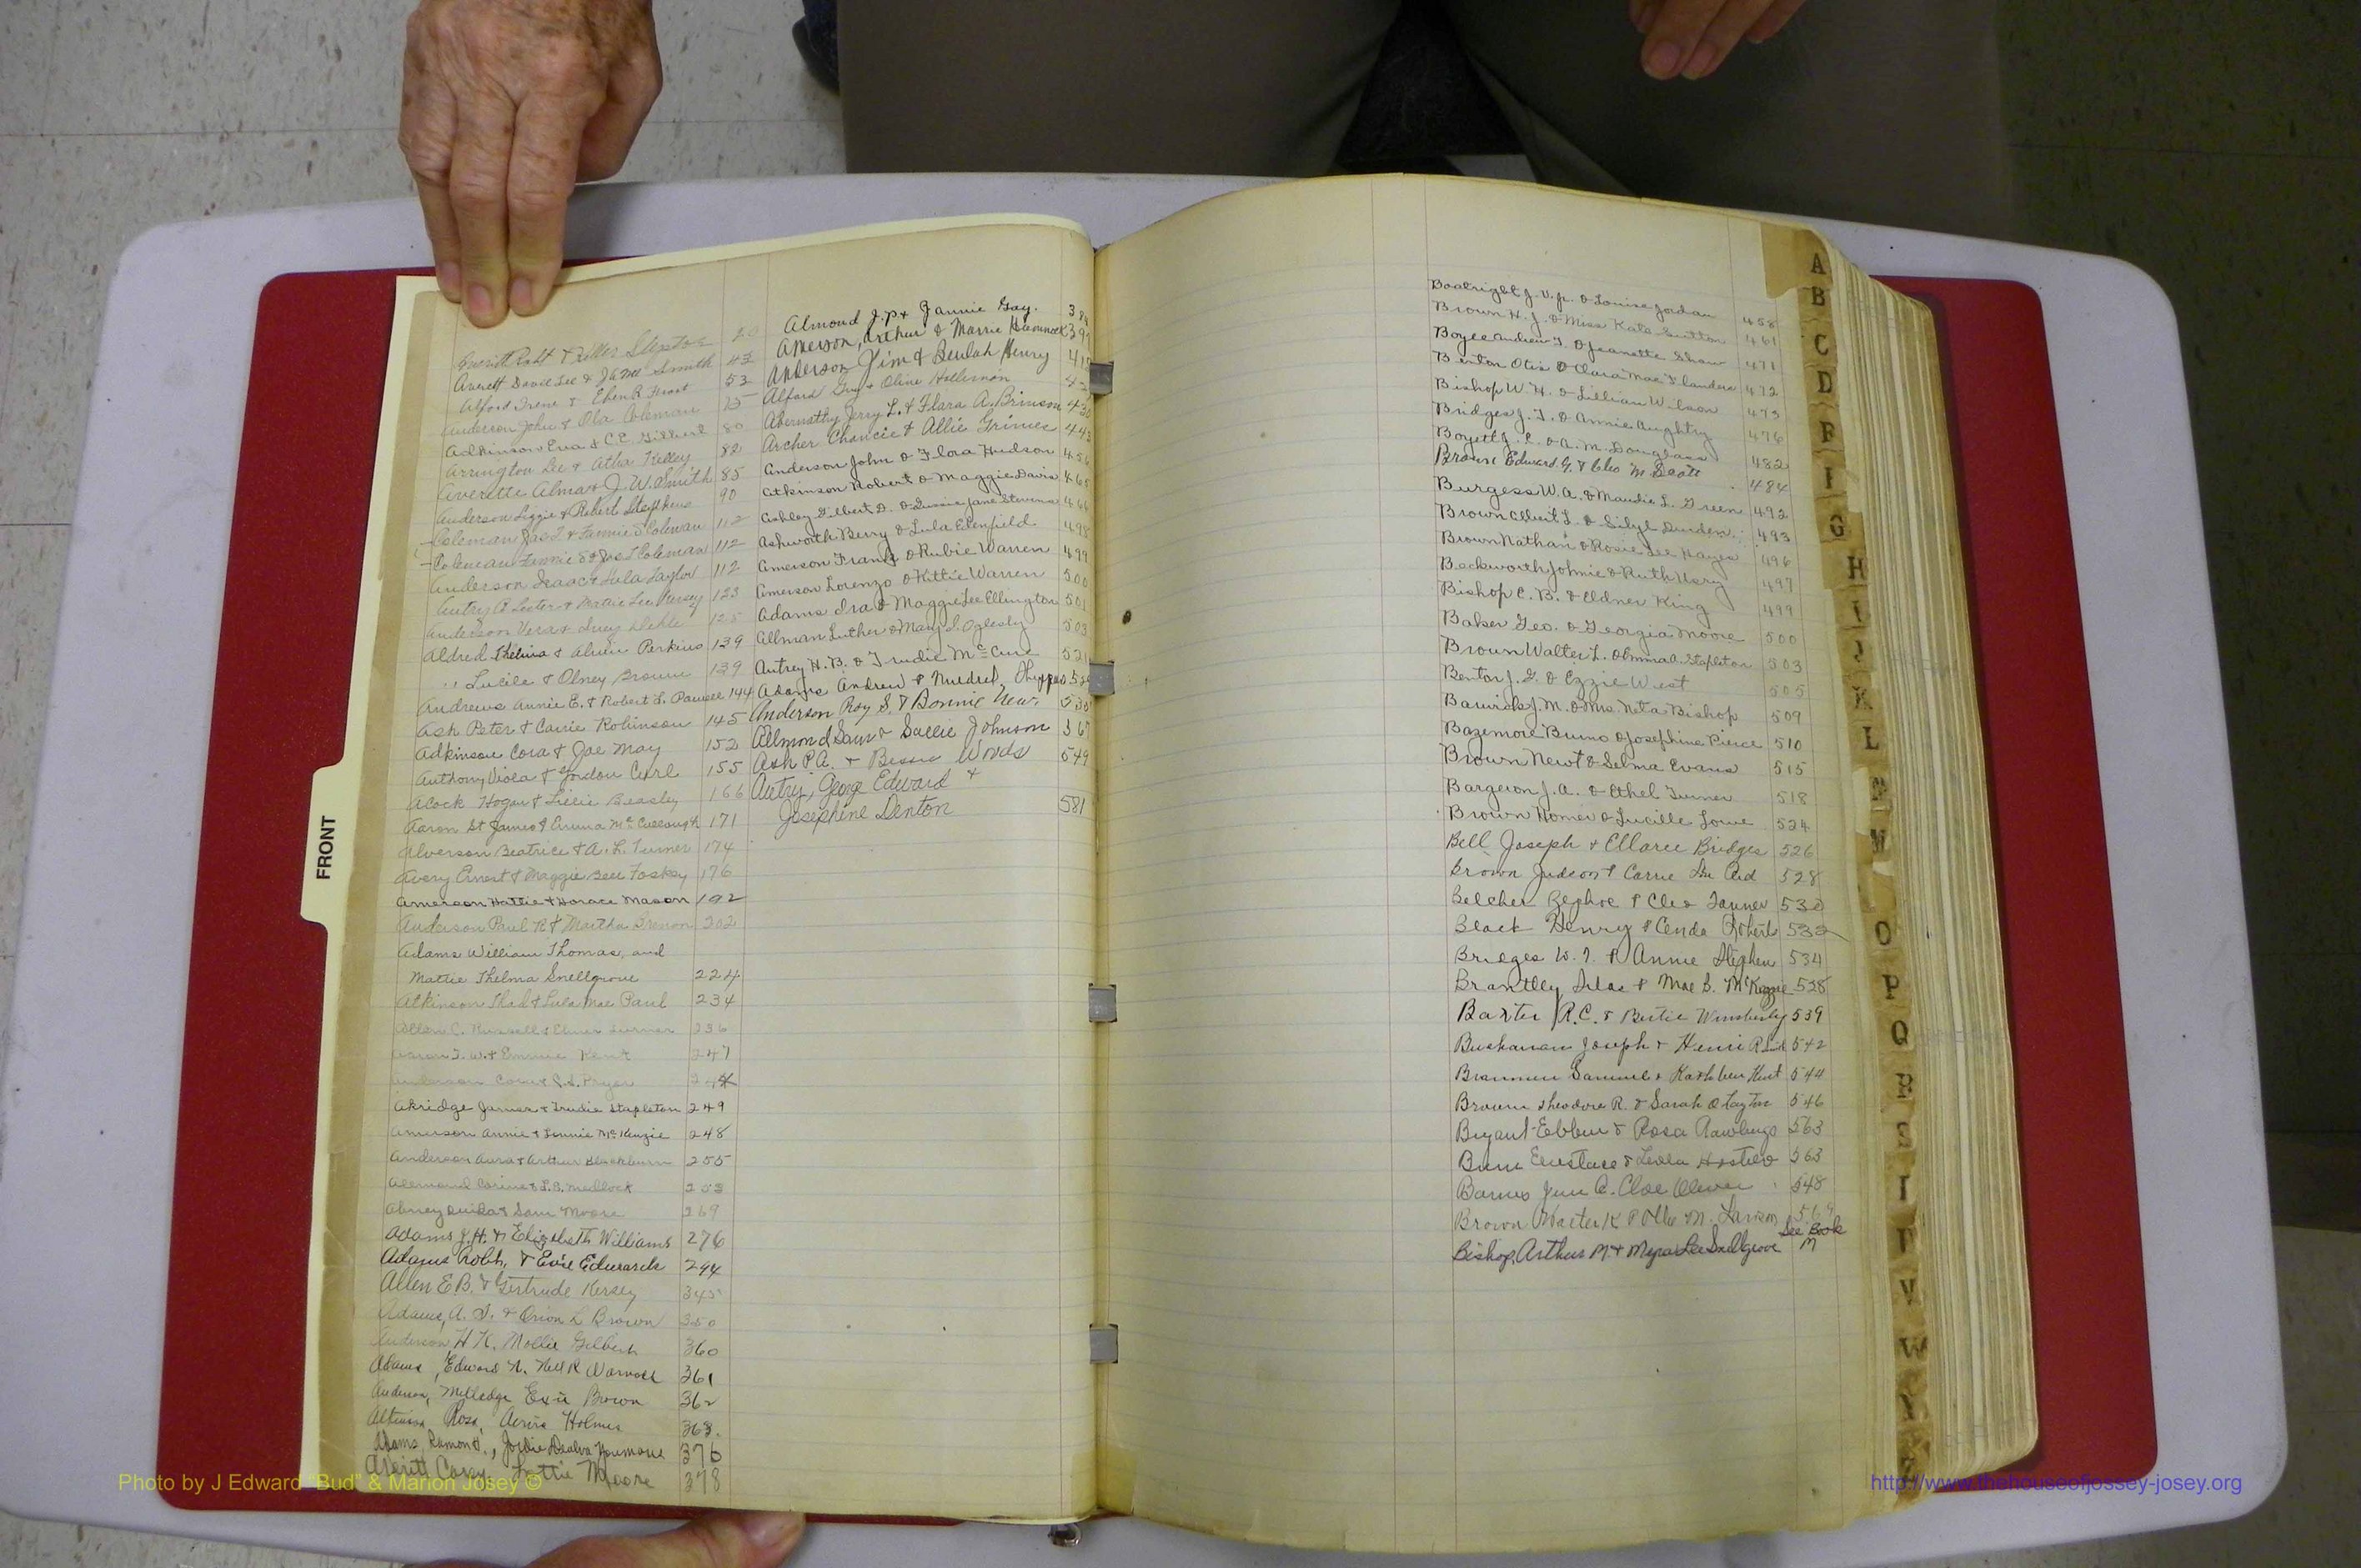 FRONT
Averett David Lee & 43
Alford Irene & Eben R. Frost 53
Anderson John & Ola Coleman 75
Adkinson Eva & C.E. Gilbert 80
Arrington Lee & Atha Kelley 82
Averette Alma & J. W. Smith 85
Anderson Lizzie & Robert Stephens 90
Coleman Jas T & Fannie S Coleman 112
Coleman Fannie S & Jas T Coleman 112
Anderson Isaac & Lula Taylor 112
Autry A Lester & Mattie Lee Kersey 123
Anderson Vera & 125
Aldred Thelma & Alvin Perkins 139
" Lucile & Olney Browne 139
Andrews Annie E. & Robert L. 144
Ash Peter & Carrie Robinson 145
Adkinson Cora & Joe May 152
Anthony Viola & Gordon Curl 155
Acock Hogan & Lillie Beasley 166
Aaron St James & Emma McCullough 171
Alverson Beatrice & A. L. Turner 174
Avery Ernest & Maggie Bell Foskey 176
Amerson Hattie & Horace Mason 192
Anderson Paul R & Martha Brinson 202
Adams William Thomas, and
Mattie Thelma Snellgrove 224
Atkinson Thad & Lula Mae Paul 234
Allen C. Russell & Elmer Turner 236
Aaron J. W. & Emmie Kent 247
Anderson & J. L. Pryor
Akridge James & Trudie Stapleton 249
Amerson Annie & Lonnie McKenzie 248
Anderson Aura & Arthur Blackburn 255
Almond Corine & L.B. Medlock 253
Abney & Sam Moore 269
Adams J. H. & Elizabeth Williams 276
Adams Robt. & Evie Edwards 294
Allen E B. & Gertrude Kersey 345
Adams, A. J. & Orion L Brown 350
Anderson H K, Mollie Gilbert 360
Adams, Edward N. Nell R 361
Anderson, Milledge Evie Brown 362
Atkinson, Rosa, Holmes 363.
Adams, Ramond., 376
Averitt Casey Lottie Moore 378
Almond J. P. & Fannie Gay.
Amerson, Arthur & Mamie Hammock
Anderson Jim & Beulah Henry
Alford Guy & Oline Holleman
Abernathy Jerry L. & Flara A. Brinson
Archer Chancie & Allie Grimes
Anderson John & Flora Hudson
Atkinson Robert & Maggie Davis
Ashley Gilbert D. & Jane Stevens
Ashworth Berry & Lula Edenfield 498
Amerson Frank & Rubie Warren 499
Amerson Lorenzo & Kittie Warren 500
Adams Ira & Maggie Lee Ellington 501
Allman Luther & Mary S. Oglesby 503
Autrey H. B. & Trudie McCure 521
Adams Andrew & Muldred
Anderson Roy S. & Bonnie New.
Allmond Sam & Sallie Johnson 367
Ash P. A. & Bessie Woods 549
Autry, George Edward &
Josephine Denton 581
Boatright J. V. Jr. & Louise Jordan 458
Brown H. J. & Miss Kate Sutton 461
Boyce Andrew J. & Jeanette Shaw 471
Benton Otis & Clara Mae Flanders 472
Bishop W. H. & Lillian Wilson 473
Bridges J. T. & Annie Aughtry 476
Boyett J. R. & A. M. Douglass 482
Brown Edward G. & Cleo M. Scott 484
Burgess W. A. & Maudie L. Green 492
Brown Albert L. & Sibyl Durden 493
Brown Nathan & Rosie Lee Hayes 496
Beckworth Johnie & Ruth Usry 497
Bishop C. B. & Eldner King 499
Baker Geo. & Georgia Moore 500
Brown Walter L. & Emma A. Stapleton 503
Benton J. G. & Ezzie West 505
Barwick J. M. & Mrs. Neta Bishop 509
Bazemore Bruno & Josephine Pierce 510
Brown Newt & Selma Evans 515
Bargeron J. A. & Ethel Turner 518
Brown Homer & Lucille Lowe 524
Bell Joseph & Ellaree Bridges 526
Brown Judson & Carrie Lu Reid 528
Belcher & Cleo Tanner 530
Black Henry & Cenda Roberts 532
Bridges W. T. & Annie Stephen 534
Brantley Silas & Mae S. McKenzie 538
Baxter R. C. & Bertie Wimberley 539
Buchanan Joseph & 542
Brannen Samuel & Kathleen Hunt 544
Brown Theodore R. & Sarah O Layton 546
Bryant & Rosa Rawlings 563
Eustace & Leola 563
Barnes June A. Cloe Oliver 548
Brown Walter K & Ollie M. Lawson 569
Bishop, Arthur M. & Myra Lee Snellgrove See Book M
A
B
C
D
F
G
H
I
J
K
L
M
O
P
Q
R
S
T
V
W
Y
Photo by J Edward "Bud" & Marion Josey ©
http://www.thehouseofjossey-josey.org